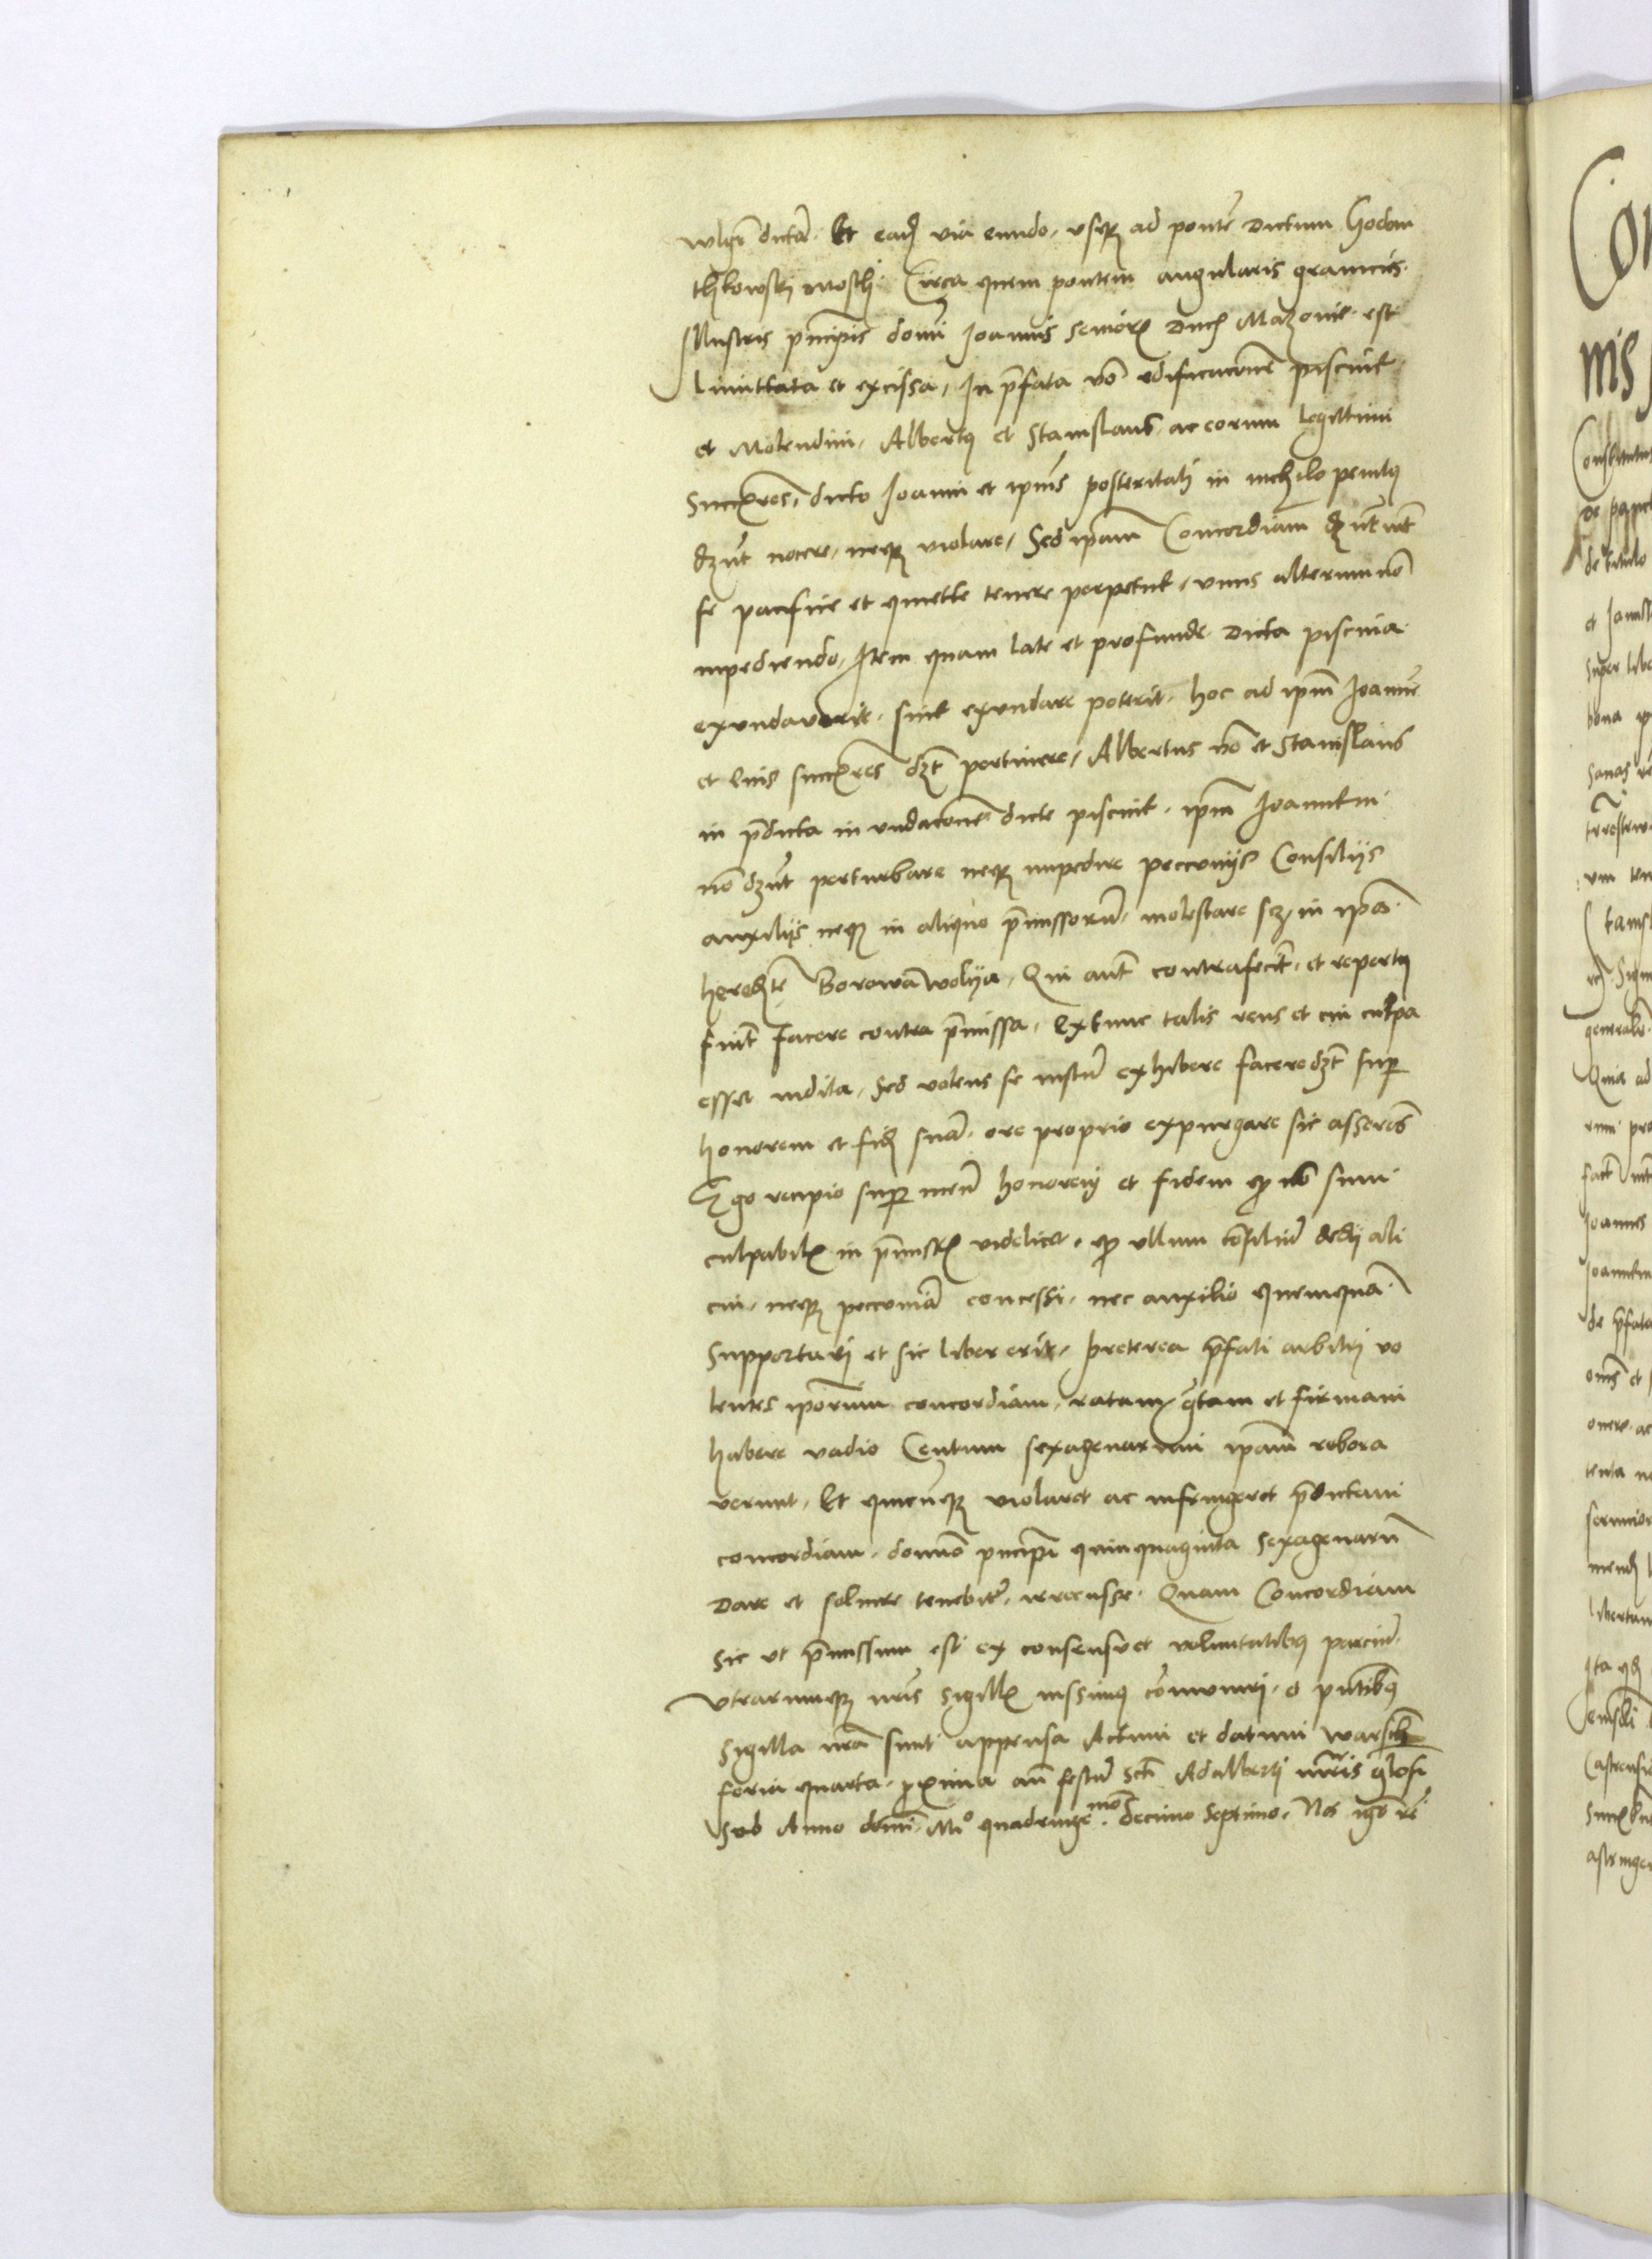 wlgr dictā. Et eadē via eundo. usqz ad pontē dictum Chodom
thkowski mosth. Circa quem pontem angularis granicies.
Illustris pncipis domī Joannis seniorꝭ Ducꝭ Mazovie. est
limittata et excissa, In p̄fata vō edificacōne piscine
et Molendini, Albertꝯ et Stanislaus, ac eorum legittimi
Successores, dicto Joanni et ipius posteritati in nichilo penitꝯ
dzūt nocere, neqz violare, Sed ipam Concordiam dzūt int
se pacifice et quiette tenere perpetue, unus alterum nō
inpediendo, Item quam late et profunde dicta piscina
exundaverit. sive exundare poterit. hoc ad ipm Joannē
et Eius succꝭores dzt pertinere, Albertus vō et Stanislaus
in p̄dicta in undacōne dicte piscine. ipm Joannem
nō dzūt perturbare neqz impedire peccuniis Consiliis
auxiliis neqz in aliquo p̄missorū. molestare sz in ipā
heredte Borowa wolya, Qui aut contrafecerit. et repertꝯ
fuit facere contra p̄missa, Extunc talis reus et cui culpa
esset indita, Sed volens se iustū exhibere facere dzt sup
honorem et fidē suā. ore proprio expurgare sic asserēs
Ego recipio sup meū honorem et fidem qꝫ nō sum
culpabilꝭ in p̄missꝭ videlicet. qꝫ ullum cōsiliū dedi ali
cui. neqz peccuniā concessi. nec auxilio quemquā
supportavi et sic liber erit, preterea p̄fati arbitri vo
lentes ipōrum concordiam, ratam, grātam et firmam
habere vadio Centum sexagenarum ipam robora
verunt, Et quicūqz violaret ac infringeret p̄dictam
concordiam. domino pncipi quinquaginta sexagenarū
Dare et solvere tenebitꝛ. irrecusse. Quam Concordiam
sic ut p̄missum est ex consensu et voluntatibꝯ parciū
utrarumqz nris sigillꝭ iussimꝯ cōmuniri. & pntibꝯ
sigilla nrā sunt appensa Actum et datum warsch
feria quarta. pxima an festū Scti Adalberti mrīs glosi
Sub Anno domī. Mº quadringemo. decimo Septimo. Nos igr re